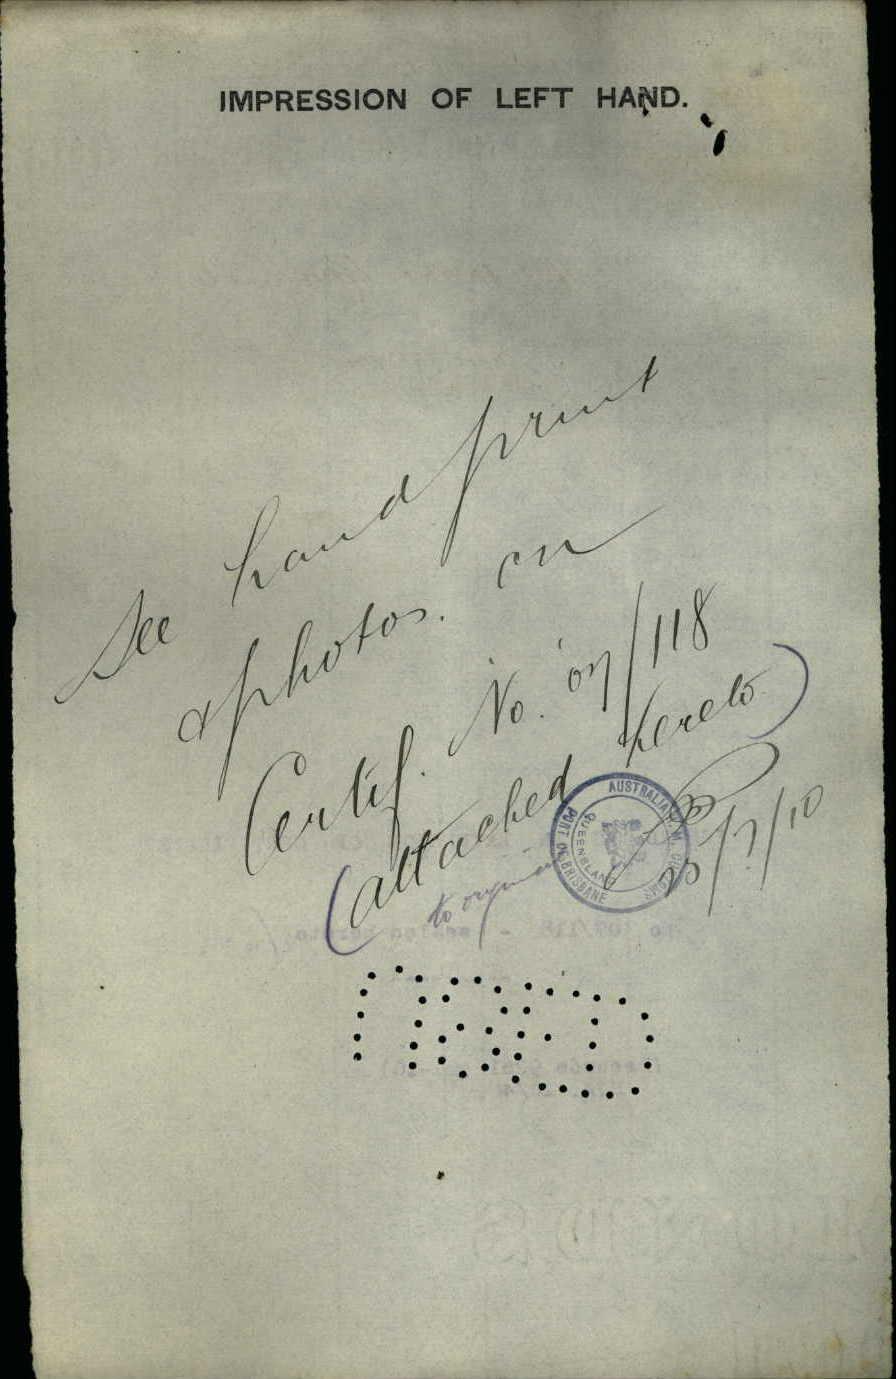 IMPRESSION OF LEFT HAND.
See hand print
& photos. on
Certif. No. 07/118
(attached hereto)
to original
AUSTRALIA
PORT OF BRISBANE
QUEENSLAND
/7/10